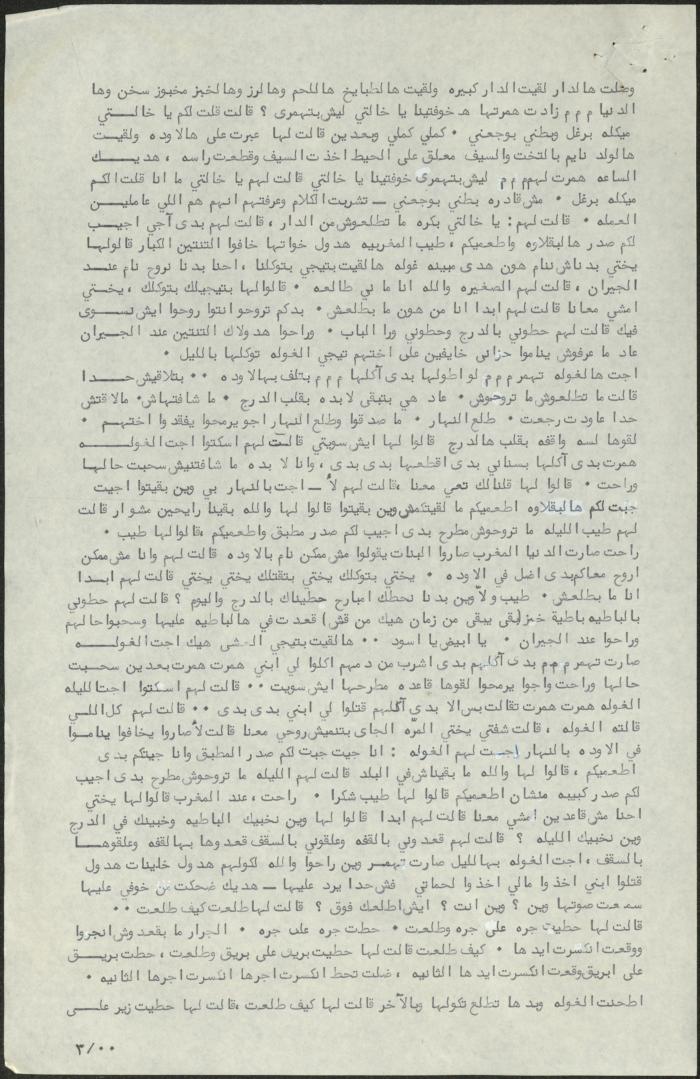 وصلت هالدار لقيت الدار كبيره ولقيت هالطبايخ هاللحم وهالرز وهالخبز مخبوز سخن وها
الدنيا م م م زادت همرتها هـ خوفتينا يا خالتي ليش بتهمرى ؟ قالت قلت لكم يا خالــتي
ميكله برغل وبطني بوجعني ٠ كملي كملي وبعدين قالت لها عبرت على هالاوده ولقيــت
هالولد نايم بالتخت والسيف معلق على الحيط اخذت السيف وقطعت راسه ، هديـــك
الساعه همرت لهم م م م ليش بتهمرى خوفتينا يا خالتي قالت لهم يا خالتي ما انا قلت الكم
ميكله برغل ٠ مش قادره بطني بوجعني ــ تشربت الكلام وعرفتهم انهم هم اللي عامليــن
العمله ٠ قالت لهم : يا خالتي بكره ما تطلعوش من الدار ، قالت لهم بدى آجي اجيــب
لكم صدر هالبقلاوه واطعميكم ، طيب المغربيه هدول خواتها خافوا التنتين الكبار قالولهـا
يختي بدناش ننام هون هدى مبينه غوله هالقيت بتيجي بتوكلنا ، احنا بدنا نروح نام عنــد
الجيران ، قالت لهم الصغيره والله انا ما ني طالعه ٠ قالوا لها بتيجيلك بتوكلك ، يخــتي
امشي معانا قالت لهم ابدا انا من هون ما بطلعش ٠ بدكم تروحوا انتوا روحوا ايش نســوى
فيك قالت لهم حطوني بالدرج وحطوني ورا الباب ٠ وراحوا هدولاك التنتين عند الجــيران
عاد ما عرفوش يناموا حزانى خايفين على اختهم تيجي الغوله توكلها بالليل ٠
اجت هالغوله تهمر م م م لو اطولها بدى آكلها م م م بتلف بهالاوده ٠٠ بتلاقيش حــدا
قالت ما تطلعوش ما تروحوش ٠ عاد هي بتبقى لابده بقلب الدرج ٠ ما شافتهاش٠ مالاقتش
حدا عاودت رجعت ٠ طلع النهار ٠ ما صدقوا وطلع النهار اجو يرمحوا يفقدوا اختهــم ٠
لقوها لسه واقفه بقلب هالدرج قالوا لها ايش سويتي قالت لهم اسكتوا اجت الغولـــه
همرت بدى آكلها بسناني بدى اقطعها بدى بدى ، وانا لا بده ما شافتنيش سحبت حالهـا
وراحت ٠ قالوا لها قلنالك تعي معنا ،قالت لهم لأ ــ اجت بالنهار بي وين بقيتوا اجيت
جبت لكم هالبقلاوه اطعميكم ما لقيتكمش وين بقيتوا قالوا لها والله بقينا رايحين مشوار قالت
لهم طيب الليله ما تروحوش مطرح بدى اجيب لكم صدر مطبق واطعميكم ،قالوا لها طيب ٠
راحت صارت الدنيا المغرب صاروا البنات يقولوا مش ممكن نام بالاوده قالت لهم وانا مش ممكن
اروح معاكم بدى اضل في الاوده ٠ يختي بتوكلك يختي بتقتلك يختي يختي قالت لهم ابــدا
انا ما بطلعش ٠ طيب ولاّ وين بدنا نحطك امبارح حطيناك بالدرج واليوم ؟ قالت لهم حطوني
بالباطيه باطية خبز (بقى يبقى من زمان هيك من قش) قعدت في هالباطيه عليها وسحبوا حالهم
وراحوا عند الجيران ٠ يا ابيض يا اسود ٠٠ هالقيت بتيجي هيك اجت الغولــه
صارت تهمر م م م بدى آكلهم بدى اشرب من دمهم اكلوا لي ابني همرت همرت بعدين سحــبت
حالها وراحت واجوا يرمحوا لقوها قاعده مطرحها ايش سويت ٠٠ قالت لهم اسكتوا اجت الليله
الغوله همرت همرت تقالت بس الا بدى آكلهم قتلوا لي ابني بدى بدى ٠٠ قالت لهم كل اللــي
قالته الغوله ، قالت شفتي يختي المرّه الجاى بتنميش روحي معنا قالت لأ صاروا يخافوا ينامــوا
في الاوده بالنهار اجــت لهم الغوله : انا جيت جبت لكم صدر المطبق وانا جيتكم بدى
اطعميكم ، قالوا لها والله ما بقيناش في البلد قالت لهم الليله ما تروحوش مطرح بدى اجيب
لكم صدر كبيبه منشان اطعميكم قالوا لها طيب شكرا ٠ راحت ، عند المغرب قالوا لها يختي
احنا مش قاعدين امشي معنا قالت لهم ابدا قالوا لها وين نخبيك الباطيه وخبينك في الدرج
وين نخبيك الليله ؟ قالت لهم قعدوني بالقفه وعلقوني بالسقف قعدوها بهالقفه وعلقوهــا
بالسقف ، اجت الغوله بهالليل صارت تهمــر وين راحوا والله لكولهم هدول خلينات هدول
قتلوا ابني اخذوا مالي اخذوا لحماتي فش حدا يرد عليها ــ هديك ضحكت من خوفي عليها
سمعت صوتها وين ؟ وين انت ؟ ايش اطلعك فوق ؟ قالت لها طلعت كيف طلعت ٠٠
قالت لها حطيت جره على جره وطلعت ٠ حطت جره على جره ٠ الجرار ما بقعدوش انجروا
ووقعت انكسرت ايدها ٠ كيف طلعت قالت لها حطيت بريق على بريق وطلعت ، حطت بريــق
على ابريق وقعت انكسرت ايدها الثانيه ، ضلت تحط انكسرت اجرها انكسرت اجرها الثانيه ٠
اطحنت الغوله وبدها تطلع تكولها وبالآخر قالت لها كيف طلعت ،قالت لها حطيت زير علــى
٣/٠٠